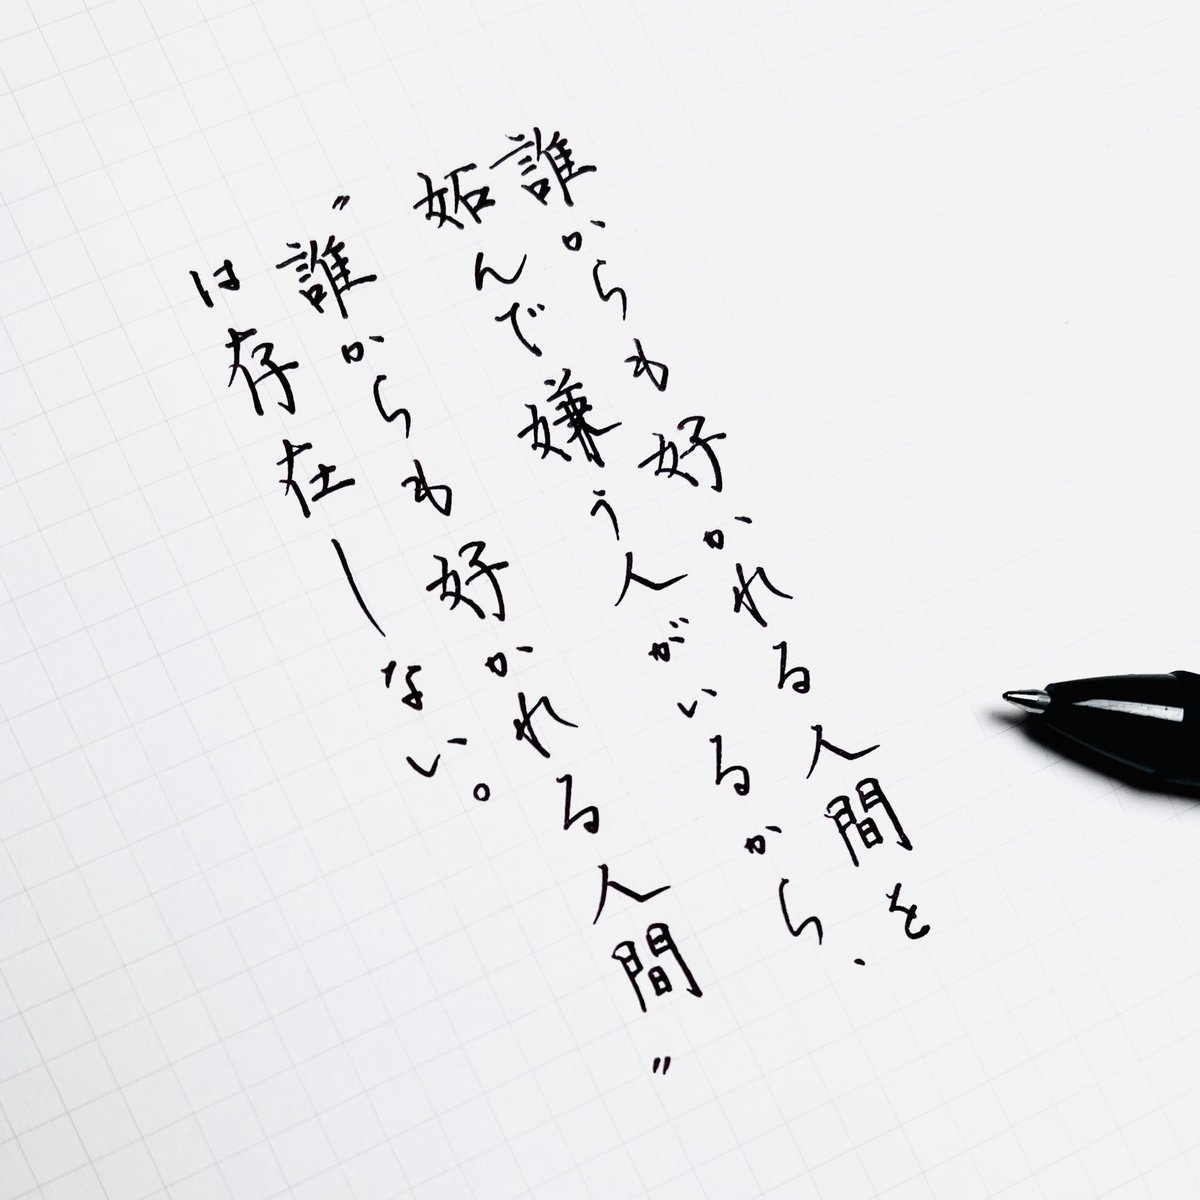 誰からも好かれる人間を
妬んで嫌う人がいるから、
〃誰からも好かれる人間〃
は存在しない。